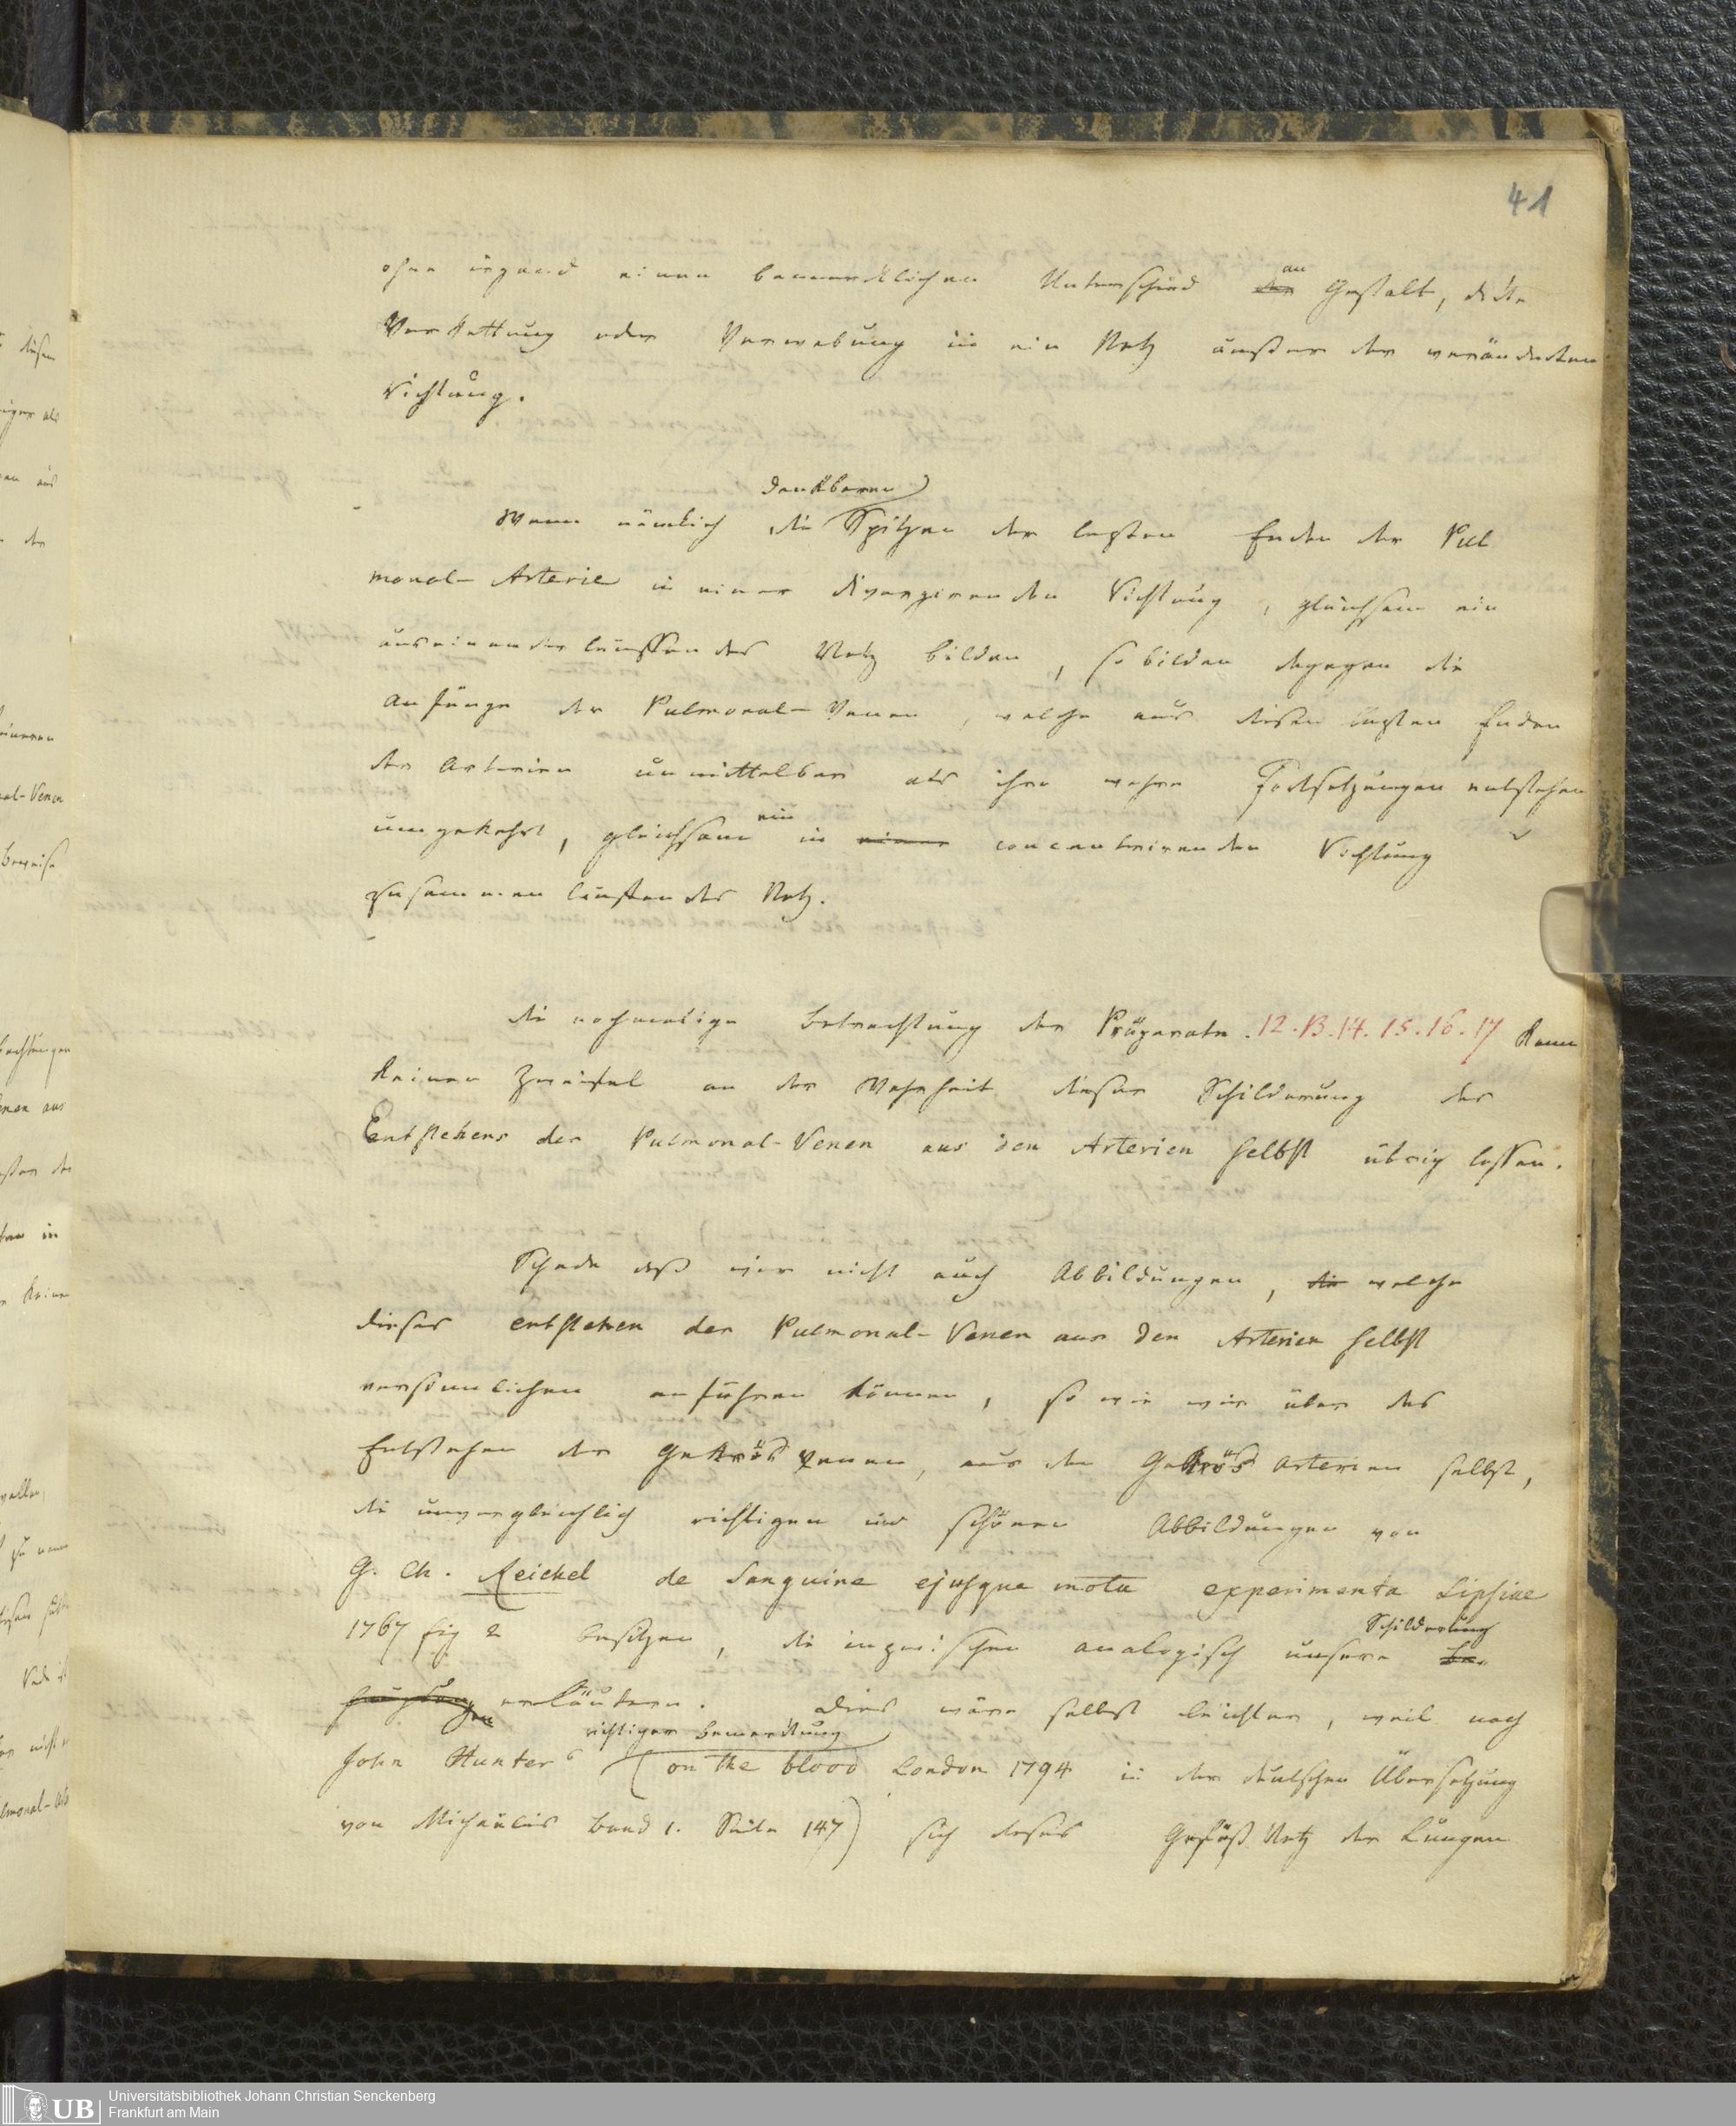 41
ohne irgend einen bemerklichen Unterschied an der Gestalt, dickte
Verkettung oder Verwebung in ein Netz außer der veränderten
Richtung.
denkbaren
Wenn nämlich die Spitzen der lezten Enden der Pul
monal-Arterie in einer divergirenden Richtung, gleichsam ein
auseinanderlaufendes Netz bilden, so bilden dagegen die
Anfänge der Pulmonal-Venen, welche aus diesen lezten Enden
der Arterien unmittelbar als ihre wahre Fortsetzungen entstehen
umgekehrt, gleichsam ein in einer concentrirenden Richtung
zusammen laufendes Netz.
die nochmalige Betrachtung der Präparate. 12. 13. 14. 15. 16. 17 kann
keinen Zweifel an der Wahrheit dieser Schilderung des
Entstehens der Pulmonal-Venen aus den Arterien selbst übrig lassen.
Schade daß wir nicht auch Abbildungen, die welche
dieses entstehen der Pulmonal-Venen aus den Arterien selbst
versinnlichen anführen können, so wie wir über das
Entstehen der Gekrös venen, aus den Gekrös Arterien selbst,
die unvergleichlich richtigen und schönen Abbildungen von
G. Ch. Reichel de Sanguine ejusque motu experimenta Lipsiae
1767 fig 2 besitzen, die inzwischen analogisch unsere Schilderung
erläutern. Dies wäre selbst leichter, weil nach
richtiger Bemerkung
John Hunters (on the blood London 1794 in der deutschen Übersetzung
von Michaelis Band 1. Seite 147) sich dieses Gefäß Netz der Lungen
UB
Universitätsbibliothek Johann Christian Senckenberg
Frankfurt am Main